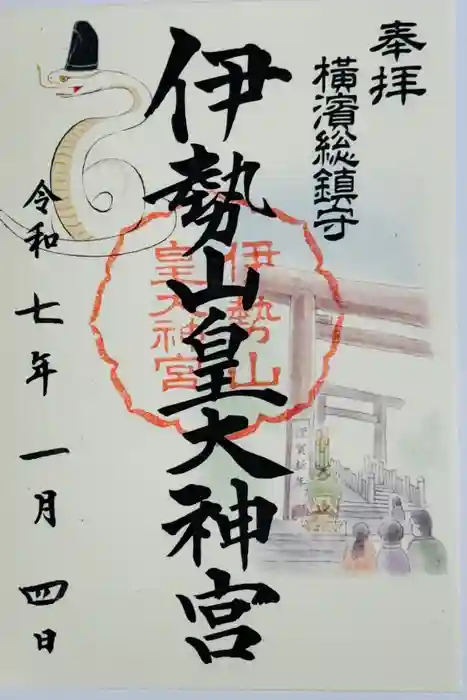 奉拝
横濱総鎮守
伊勢山皇大神宮
伊勢山
皇大神宮
謹賀新年
令和七年一月四日